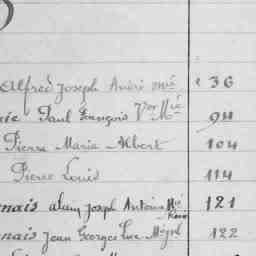 Alfred Joseph André Mie 36
Paul François Vor Mie 94
Pierre Marie Albert 104
Pierre Louis 114
nais alain Joseph Antoine Mie 121
nais Jean Georges Luc 122